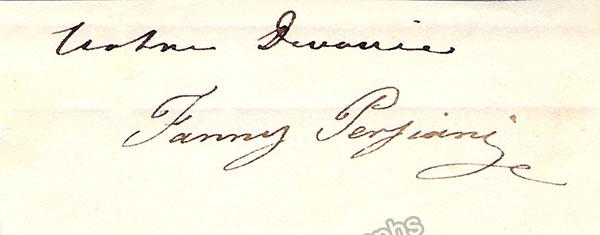 Votre Devouée
Fanny Persiani
phs